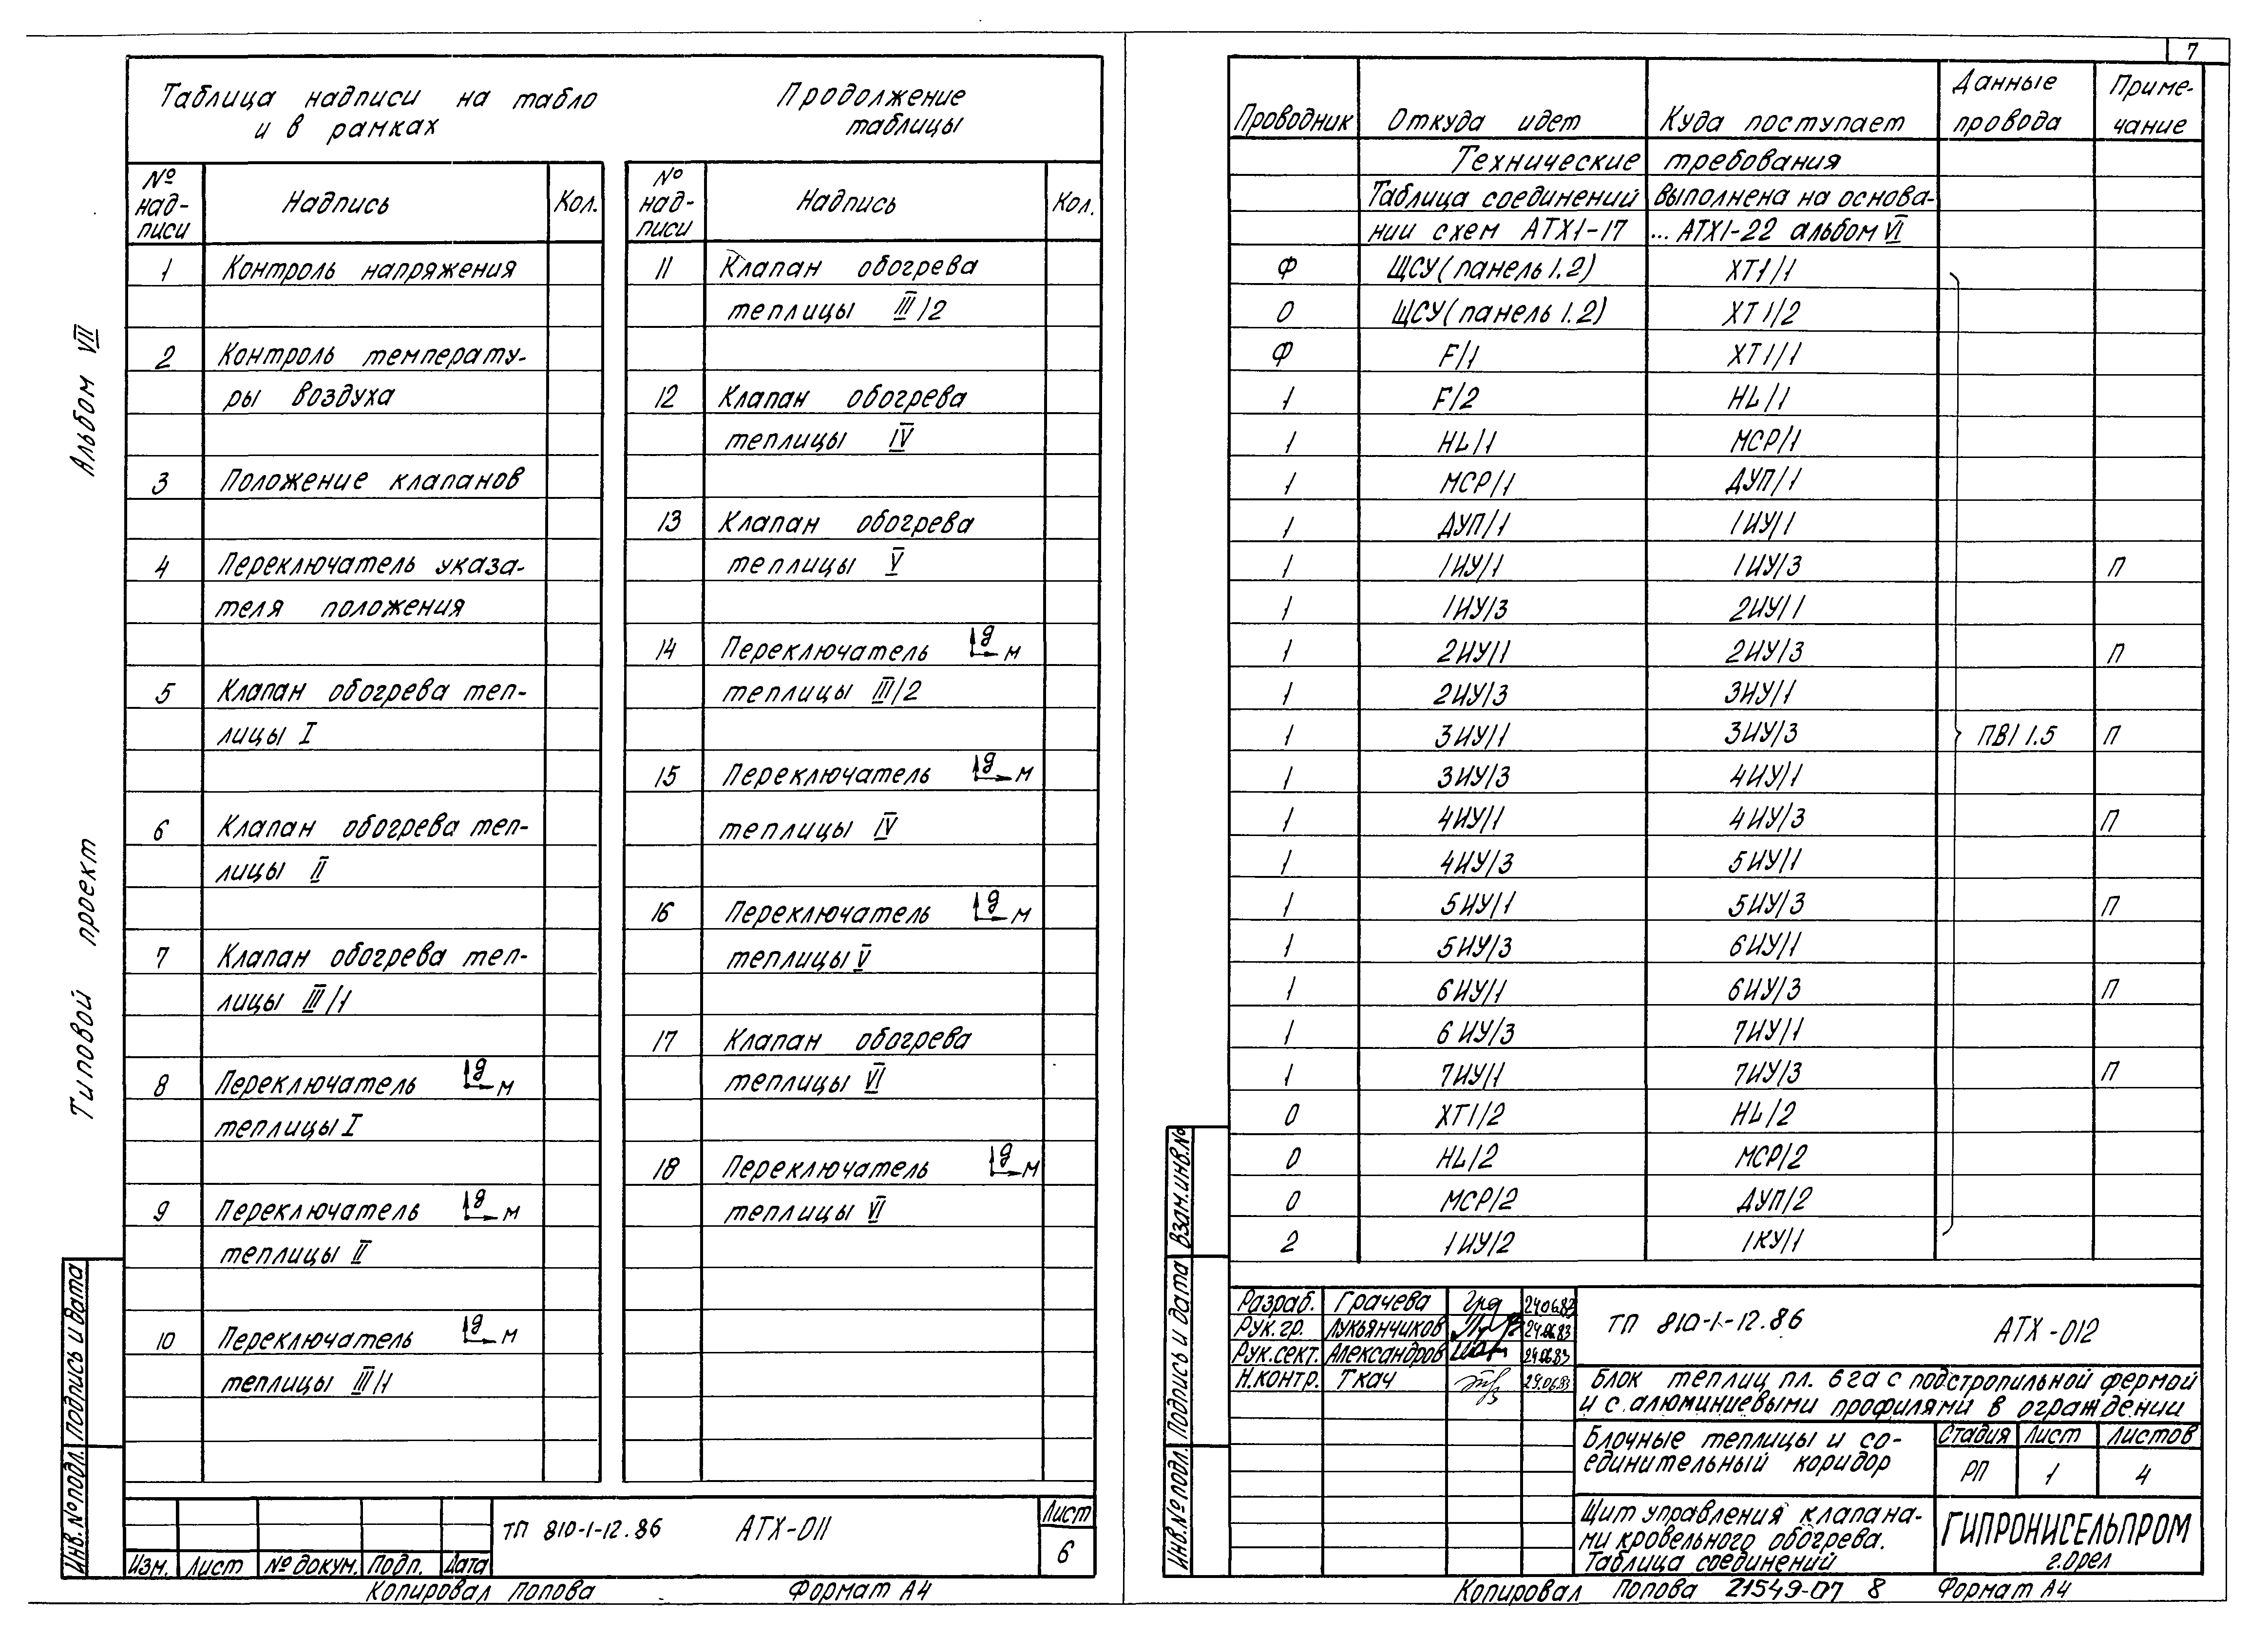 Альбом VII
Типовой проект
Таблица надписи на табло
и в рамках
№ над-писи Надпись Кол.
1 Контроль напряжения
2 Контроль температу-
ры воздуха
3 Положение клапанов
4 Переключатель указа-
теля положения
5 Клапан обогрева теп-
лицы I
6 Клапан обогрева теп-
лицы II
7 Клапан обогрева теп-
лицы III/1
8 Переключатель д м
теплицы I
9 Переключатель д м
теплицы II
10 Переключатель д м
теплицы III/1
Продолжение
таблицы
№ над-писи Надпись Кол.
11 Клапан обогрева
теплицы III/2
12 Клапан обогрева
теплицы IV
13 Клапан обогрева
теплицы V
14 Переключатель д м
теплицы III/2
15 Переключатель д м
теплицы IV
16 Переключатель д м
теплицы V
17 Клапан обогрева
теплицы VI
18 Переключатель д м
теплицы VI
Инв.№ подл. Подпись и дата
Изм. Лист № докум. Подп. Дата
ТП 810-1-12.86 АТХ-011
Лист
6
Копировал Попова Формат А4
7
Проводник Откуда идет Куда поступает Данные провода Приме-чание
Технические требования
Таблица соединений выполнена на основа-
нии схем АТХ1-17 ... АТХ1-22 альбом VI
Ф ЩСУ(панель 1.2) ХТ1/1
0 ЩСУ(панель 1.2) ХТ1/2
Ф F/1 ХТ1/1
1 F/2 HL/1
1 HL/1 МСР/1
1 МСР/1 ДУП/1
1 ДУП/1 1ИУ/1
1 1ИУ/1 1ИУ/3 П
1 1ИУ/3 2ИУ/1
1 2ИУ/1 2ИУ/3 П
1 2ИУ/3 3ИУ/1
1 3ИУ/1 3ИУ/3 ПВ1 1.5 П
1 3ИУ/3 4ИУ/1
1 4ИУ/1 4ИУ/3 П
1 4ИУ/3 5ИУ/1
1 5ИУ/1 5ИУ/3 П
1 5ИУ/3 6ИУ/1
1 6ИУ/1 6ИУ/3 П
1 6ИУ/3 7ИУ/1
1 7ИУ/1 7ИУ/3 П
0 ХТ1/2 HL/2
0 HL/2 МСР/2
0 МСР/2 ДУП/2
2 1ИУ/2 1КУ/1
Инв.№ подл. Подпись и дата Взам.инв.№
Разраб. Грачева 24.06.83
Рук.гр. Лукьянчиков 24.06.83
Рук.сект. Александров 24.06.83
Н.контр. Ткач 29.06.83
ТП 810-1-12.86 АТХ-012
Блок теплиц пл. 6га с подстропильной фермой
и с алюминиевыми профилями в ограждении
Блочные теплицы и со-
единительный коридор
Стадия Лист Листов
РП 1 4
Щит управления клапана-
ми кровельного обогрева.
Таблица соединений
ГИПРОНИСЕЛЬПРОМ
г.Орел
Копировал Попова 21549-07 8 Формат А4